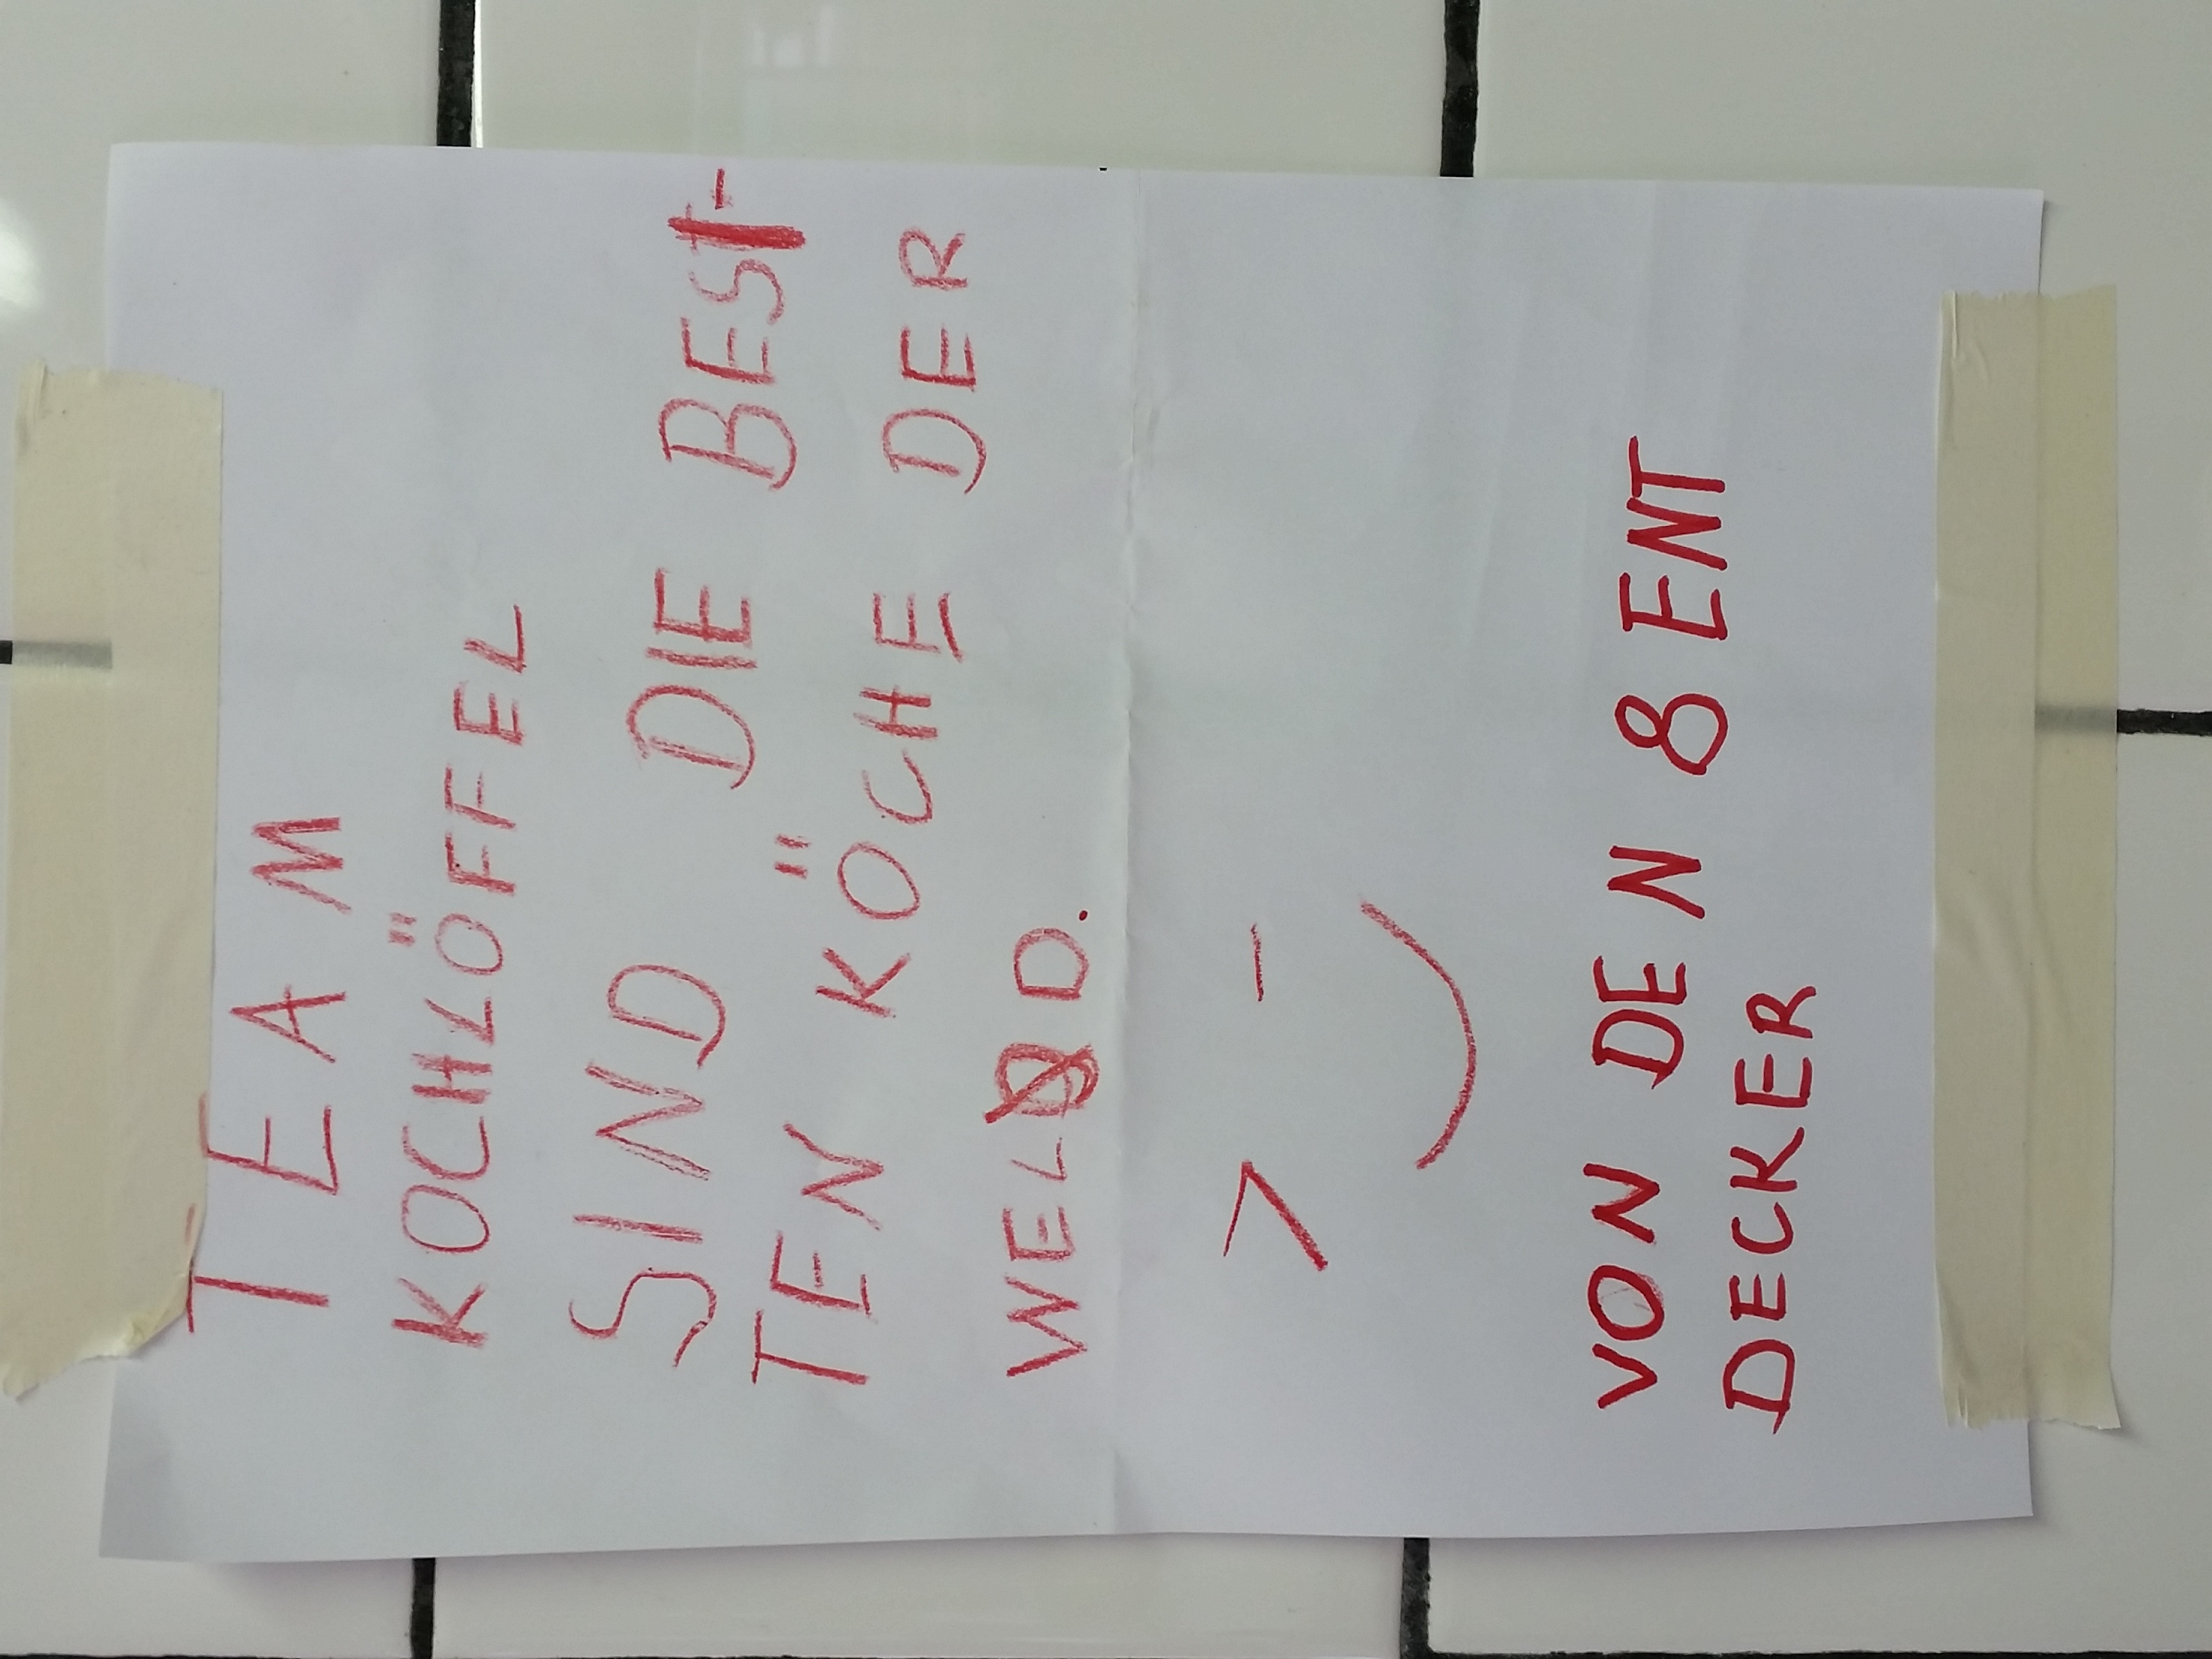 TEAM
KOCHLÖFFEL
SIND DIE BEST-
TEN KÖCHE DER
WELD.
VON DEN 8 ENT
DECKER